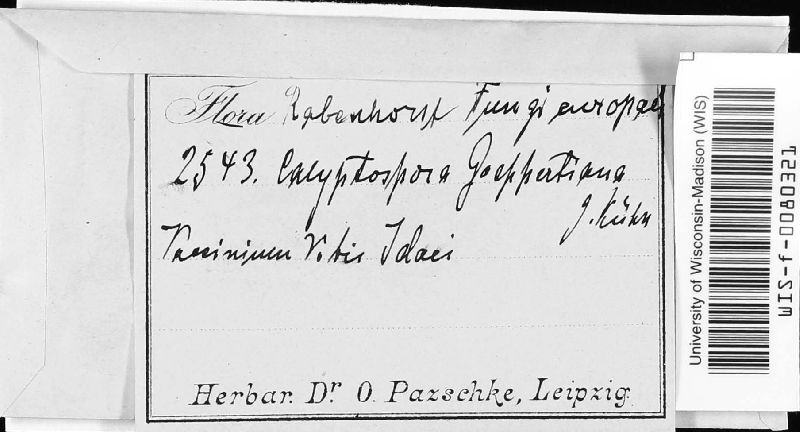 Flora Rabenhorst Fungi europaei
2543. Calyptospora Goeppertiana
J. Kühn
Vaccinium Vitis Idaei
Herbar. Dr. O. Pazschke, Leipzig.
University of Wisconsin-Madison (WIS)
WIS-f-0080321